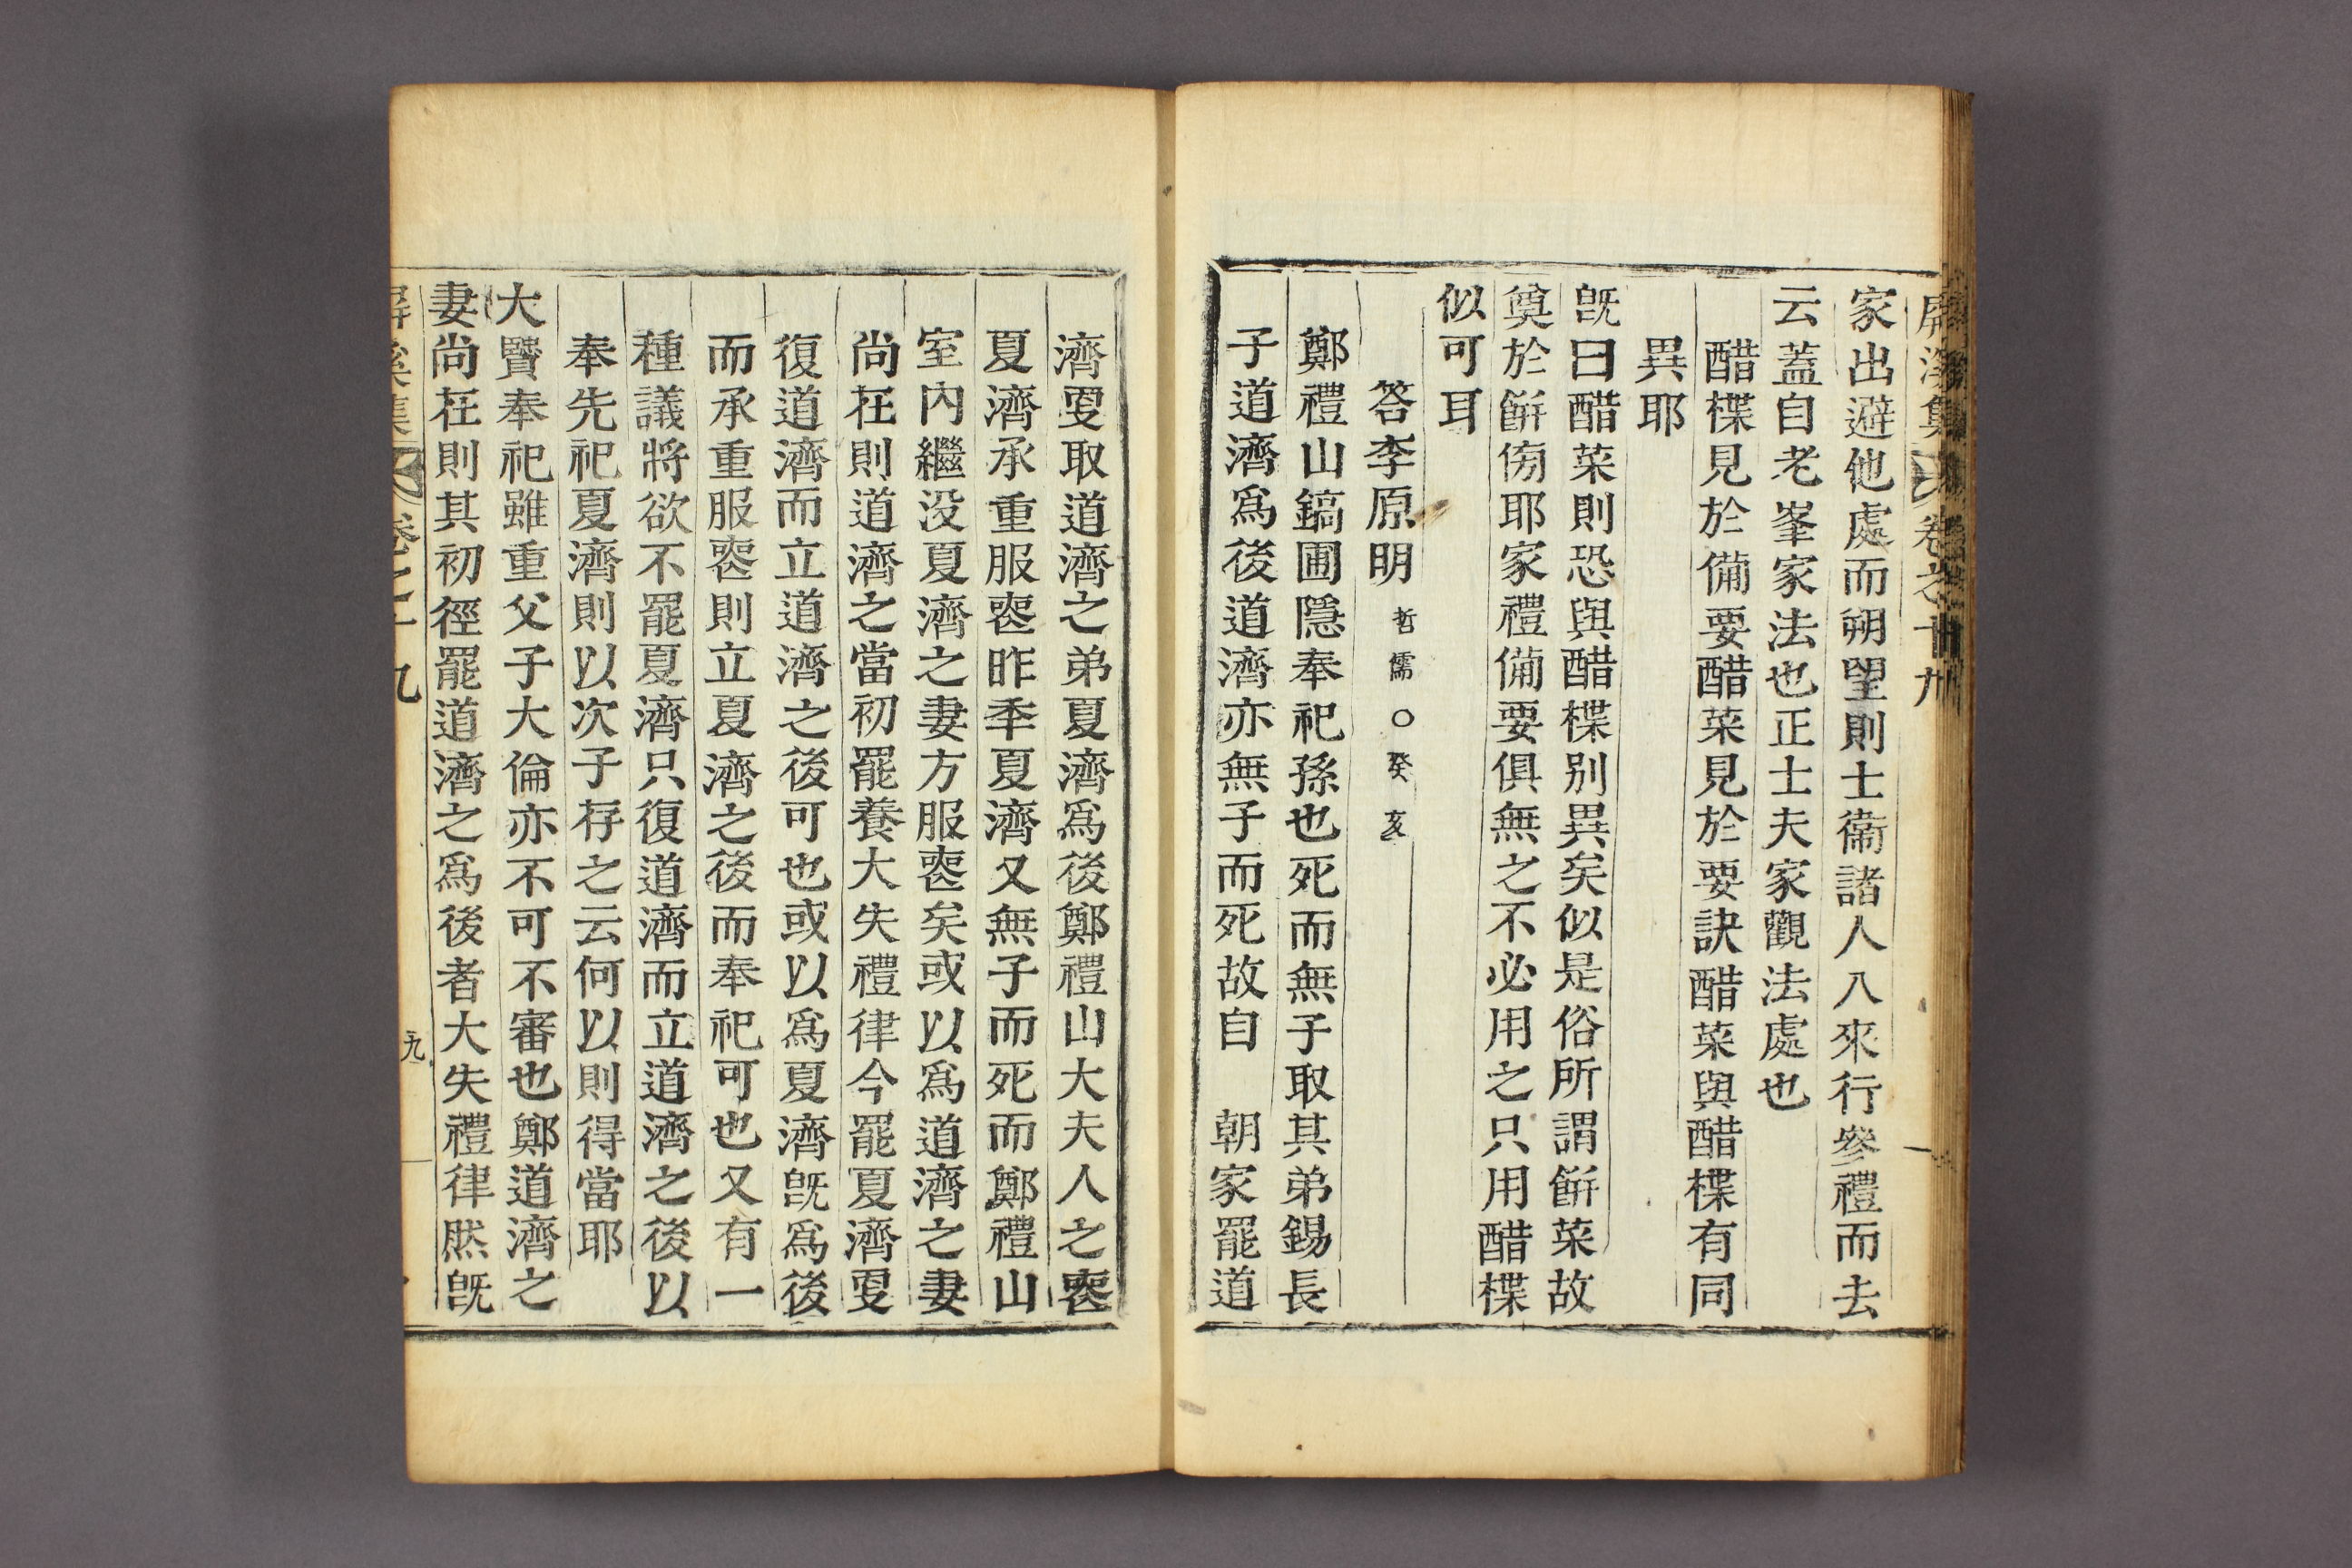 屏溪集 卷之十九
家出避他處而朔望則士衞諸人八來行參禮而去
云蓋自老峯家法也正士夫家觀法處也
醋楪見於備要醋菜見於要訣醋菜與醋楪有同
異耶
旣曰醋菜則恐與醋楪别異矣似是俗所謂餠菜故
奠於餠傍耶家禮備要俱無之不必用之只用醋楪
似可耳
答李原明 哲儒○癸亥
鄭禮山鎬圃隱奉祀孫也死而無子取其弟錫長
子道濟爲後道濟亦無子而死故自 朝家罷道
濟更取道濟之弟夏濟爲後鄭禮山大夫人之喪
夏濟承重服喪昨年夏濟又無子而死而鄭禮山
室內繼没夏濟之妻方服喪矣或以爲道濟之妻
尚在則道濟之當初罷養大失禮律今罷夏濟更
復道濟而立道濟之後可也或以爲夏濟旣爲後
而承重服喪則立夏濟之後而奉祀可也又有一
種議將欲不罷夏濟只復道濟而立道濟之後以
奉先祀夏濟則以次子存之云何以則得當耶
大賢奉祀雖重父子大倫亦不可不審也鄭道濟之
妻尚在則其初徑罷道濟之爲後者大失禮律然旣
屏溪集 卷之十九
九